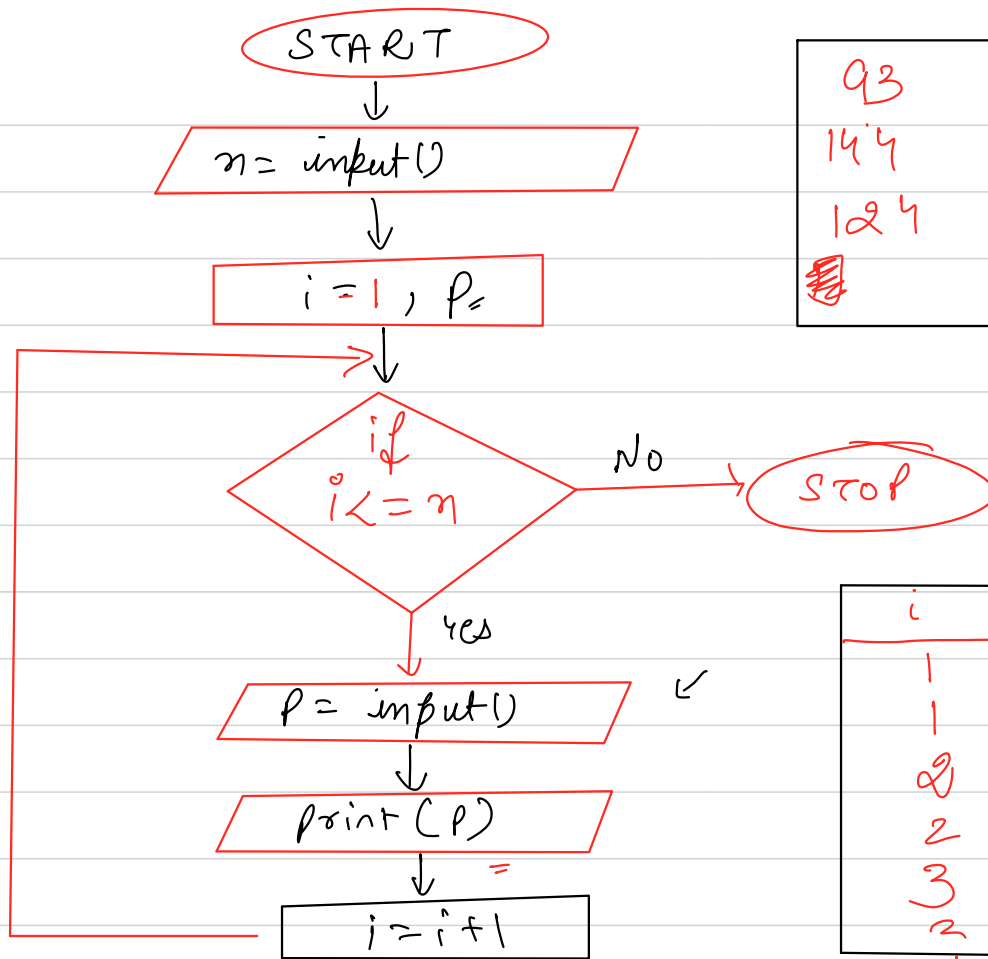 START
n = input()
i = 1, P =
if
i <= n
No
STOP
Yes
P = input()
print(P)
i = i + 1
93
144
124
i
1
1
2
2
3